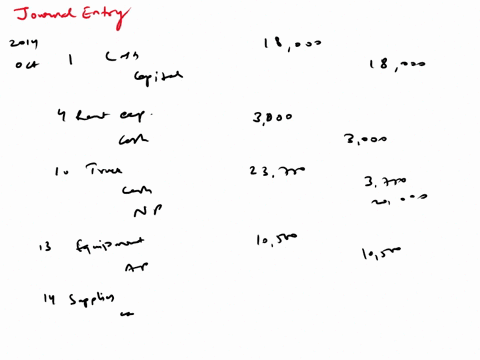 Journal Entry
2014
Oct 1 Cash 18,000
Capital 18,000
4 Rent exp. 3,000
Cash 3,000
10 Truck 23,700
Cash 3,700
NP 20,000
13 Equipment 10,500
AP 10,500
14 Supplies